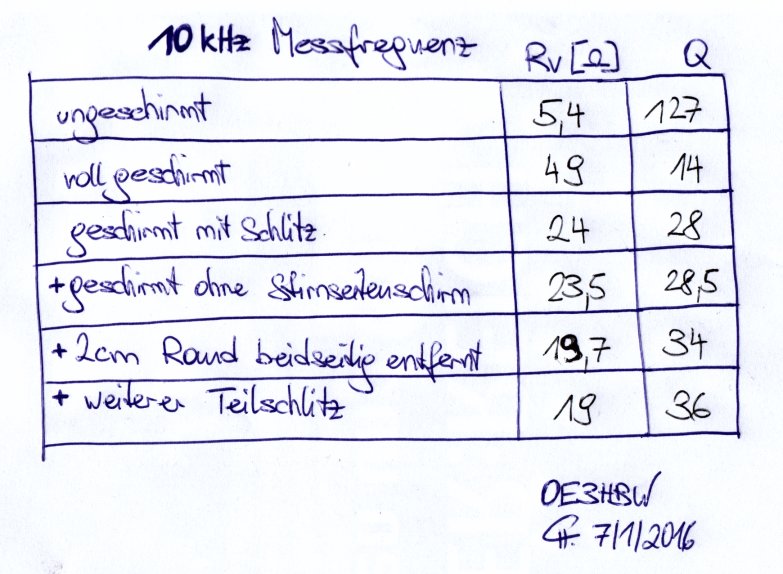 10 kHz Messfrequenz Rv [Ω] Q
ungeschirmt 5,4 127
voll geschirmt 49 14
geschirmt mit Schlitz 24 28
+ geschirmt ohne Stirnseitenschirm 23,5 28,5
+ 2cm Rand beidseitig entfernt 19,7 34
+ weiterer Teilschlitz 19 36
OE3HBW
7/1/2016